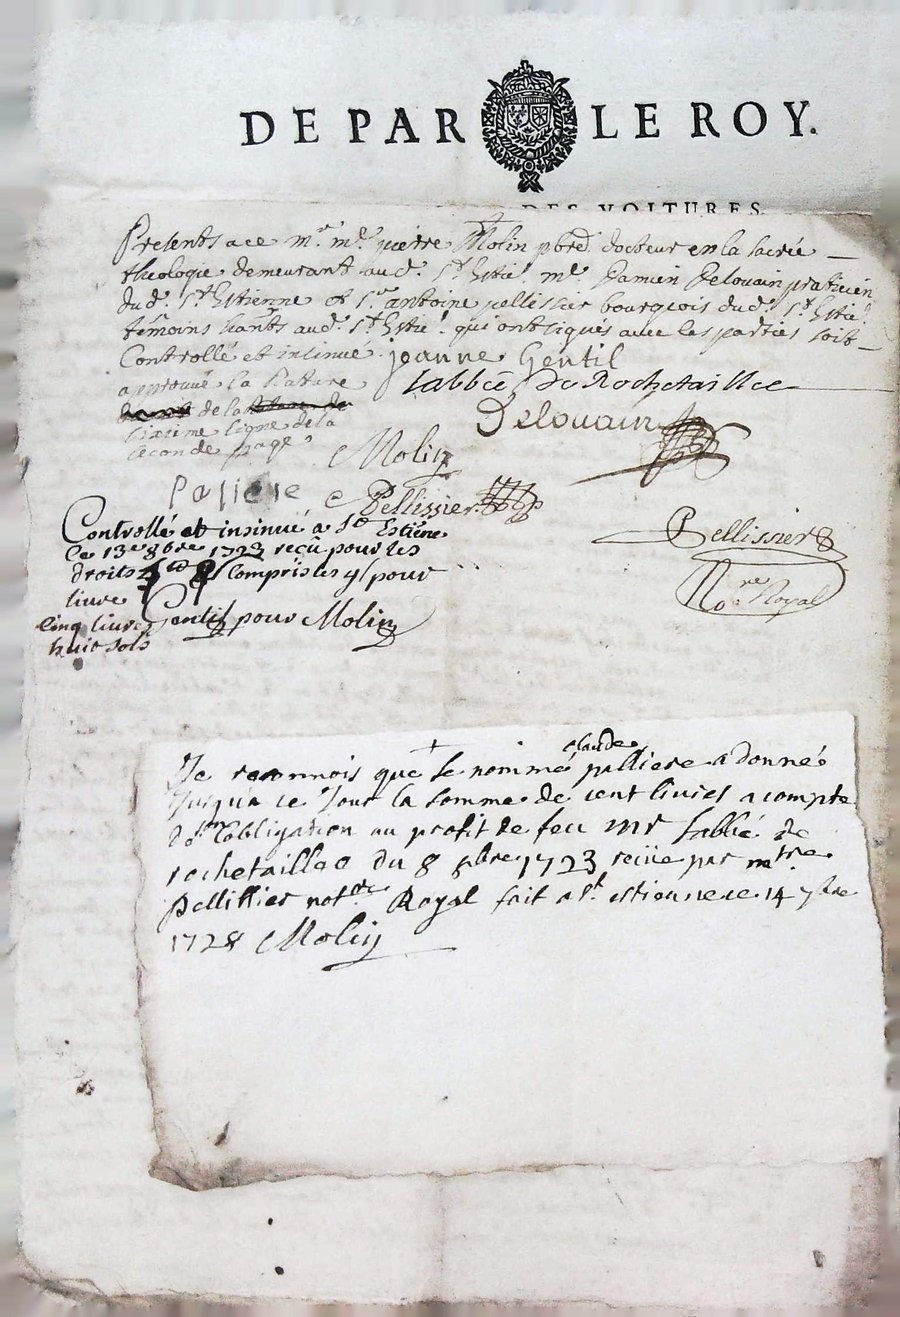 DE PAR LE ROY.
DES VOITURES
Presents a ce mr. me. pierre Molin pbre docteur en la sacrée
theologie demeurant aud. St. Estie. me. Damien Delouain praticien
du d. St. Estienne et sr. antoine pellissier bourgeois du d. St. Estie.
témoins hants aud. St. Estie. qui ont signés avec les parties soit
Controllé et insinué. jeanne Gentil
approuvé la Rature Labbée De Rochetaillee
de la
sixieme ligne de la Delouain
seconde page Molin
Paliere Pellissier
Controllé et insinué a St Estiene
Le 13e 8bre 1723 reçû pour les
droits Compris les 4s pour
livre
Cinq livres Gentil pour Molin
huit sols
Pellissier
Nore Royal
claude
Je reconnois que le nommé palliere a donné
Jusqua ce Jour la somme de cent livres a compte
dun lobligation au profit de feu mr labbé de
rochetaillee du 8 8bre 1723 reçüe par mtre
Pellissier notre Royal fait a St. estienne ce 14 7bre
1728 Molin